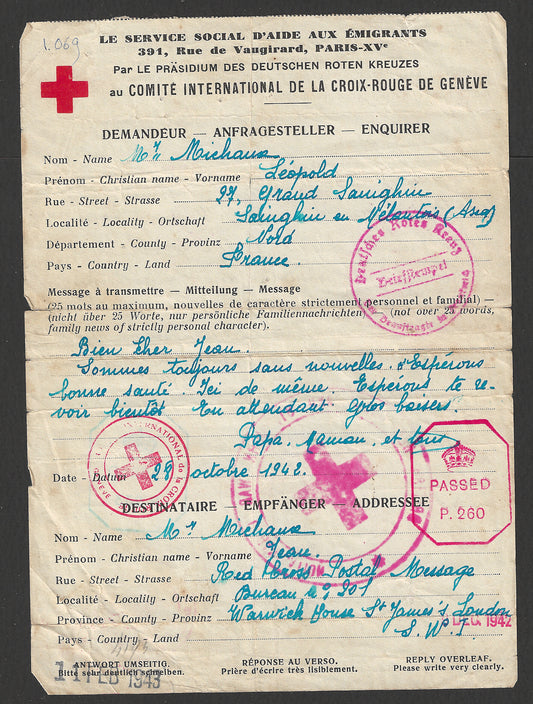 1.069
LE SERVICE SOCIAL D'AIDE AUX ÉMIGRANTS
391, Rue de Vaugirard, PARIS-XVe
Par LE PRÄSIDIUM DES DEUTSCHEN ROTEN KREUZES
au COMITÉ INTERNATIONAL DE LA CROIX-ROUGE DE GENÈVE
DEMANDEUR — ANFRAGESTELLER — ENQUIRER
Nom - Name Mr Michaux
Prénom - Christian name - Vorname Léopold
Rue - Street - Strasse 27, Grand Sainghin
Localité - Locality - Ortschaft Sainghin en Mélantois
Département - County - Provinz Nord
Pays - Country - Land France.
Deutsches Rotes Kreuz
Briefstempel
Message à transmettre — Mitteilung — Message
(25 mots au maximum, nouvelles de caractère strictement personnel et familial) —
(nicht über 25 Worte, nur persönliche Familiennachrichten) — (not over 25 words,
family news of strictly personal character).
Bien Cher Jean.
Sommes toujours sans nouvelles. Espérons
bonne santé. Ici de même. Espérons te re-
voir bientôt. En attendant gros baisers.
Papa, maman, et tous.
Date - Datum 28 octobre 1942.
PASSED
P. 260
DESTINATAIRE — EMPFÄNGER — ADDRESSEE
Nom - Name Mr Michaux
Prénom - Christian name - Vorname Jean.
Rue - Street - Strasse Red Cross Postal Message
Localité - Locality - Ortschaft Bureau no 201
Province - County - Provinz Warwick House St James's London
DEC. 1942
Pays - Country - Land S. W. 1.
ANTWORT UMSEITIG.
Bitte sehr deutlich schreiben.
RÉPONSE AU VERSO.
Prière d'écrire très lisiblement.
REPLY OVERLEAF.
Please write very clearly.
11 FEB 1943